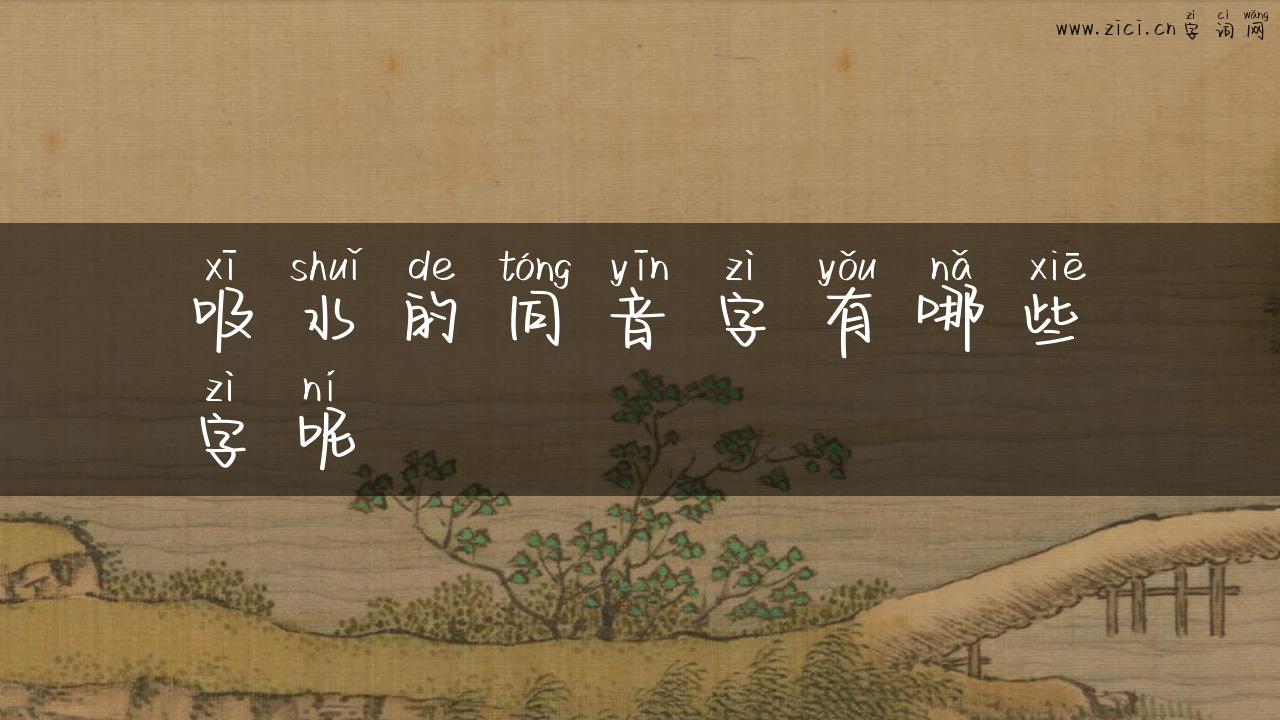 zì cí wǎng
www.zici.cn 字词网
xī shuǐ de tóng yīn zì yǒu nǎ xiē
吸水的同音字有哪些
zì ní
字呢